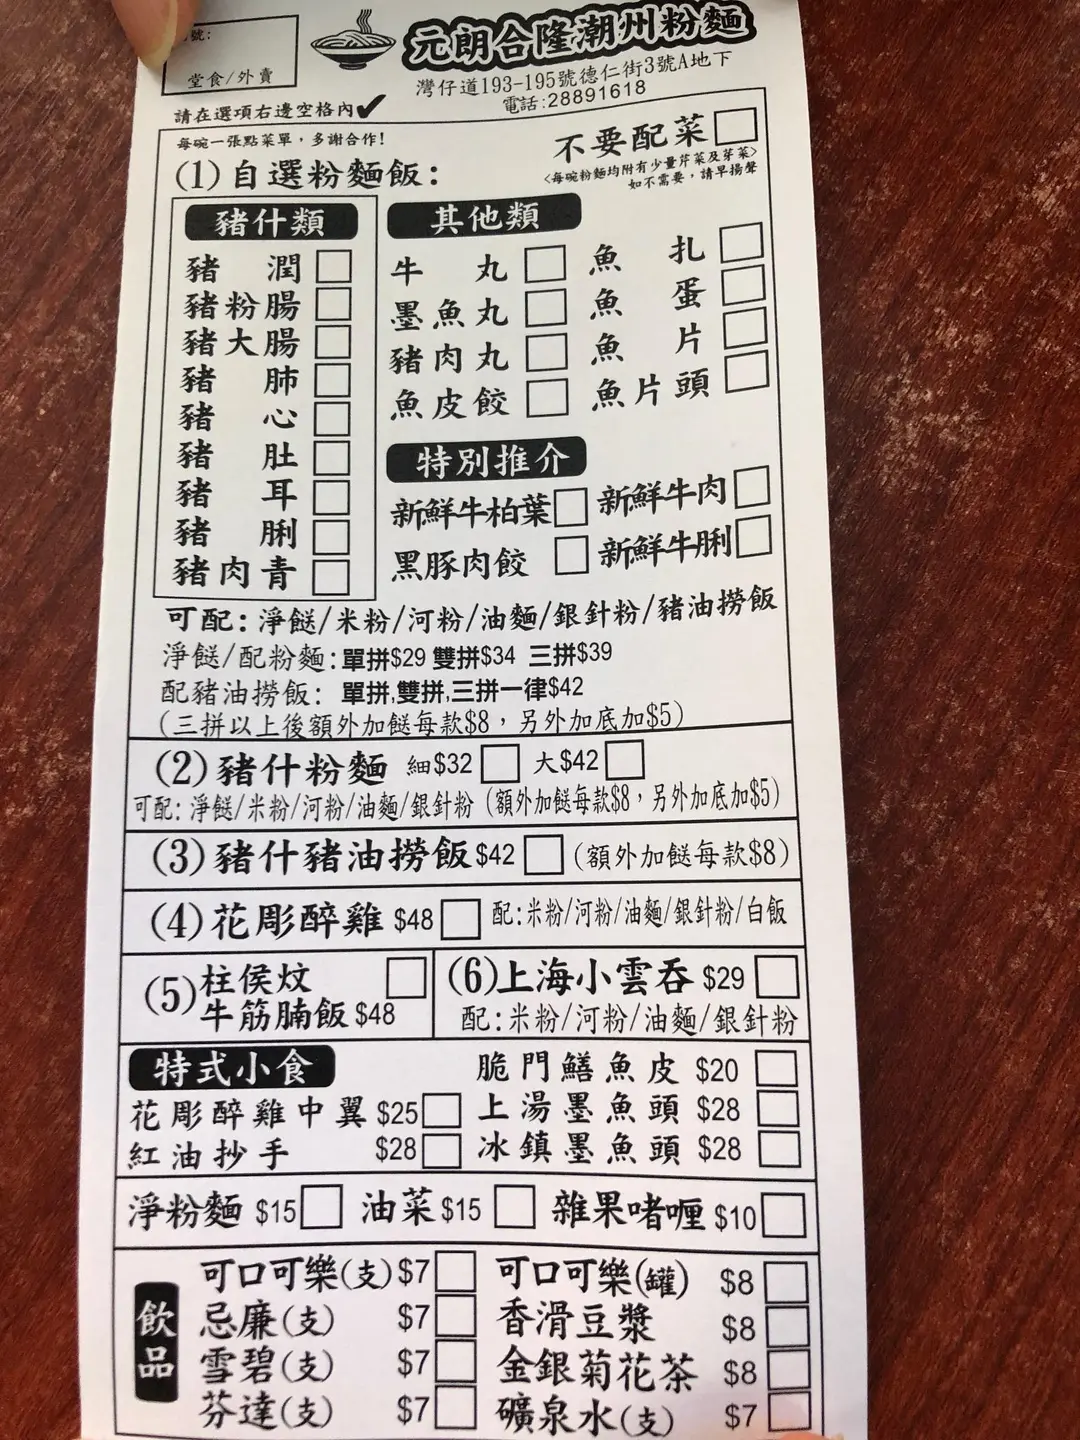 號:
堂食/外賣
元朗合隆潮州粉麵
灣仔道193-195號德仁街3號A地下
電話:28891618
請在選項右邊空格內✔
每碗一張點菜單，多謝合作!
不要配菜
<每碗粉麵均附有少量芹菜及芽菜>
如不需要，請早揚聲
(1)自選粉麵飯:
豬什類
豬潤
豬粉腸
豬大腸
豬肺
豬心
豬肚
豬耳
豬脷
豬肉青
其他類
牛丸 魚扎
墨魚丸 魚蛋
豬肉丸 魚片
魚皮餃 魚片頭
特別推介
新鮮牛柏葉 新鮮牛肉
黑豚肉餃 新鮮牛脷
可配:淨餸/米粉/河粉/油麵/銀針粉/豬油撈飯
淨餸/配粉麵:單拼$29 雙拼$34 三拼$39
配豬油撈飯: 單拼,雙拼,三拼一律$42
(三拼以上後額外加餸每款$8，另外加底加$5)
(2)豬什粉麵 細$32 大$42
可配:淨餸/米粉/河粉/油麵/銀針粉(額外加餸每款$8，另外加底加$5)
(3)豬什豬油撈飯$42 (額外加餸每款$8)
(4)花彫醉雞 $48 配:米粉/河粉/油麵/銀針粉/白飯
(5)柱侯炆
牛筋腩飯 $48
(6)上海小雲吞 $29
配:米粉/河粉/油麵/銀針粉
特式小食
脆門鱔魚皮 $20
花彫醉雞中翼 $25 上湯墨魚頭 $28
紅油抄手 $28 冰鎮墨魚頭 $28
淨粉麵 $15 油菜 $15 雜果啫喱 $10
飲品
可口可樂(支) $7 可口可樂(罐) $8
忌廉(支) $7 香滑豆漿 $8
雪碧(支) $7 金銀菊花茶 $8
芬達(支) $7 礦泉水(支) $7